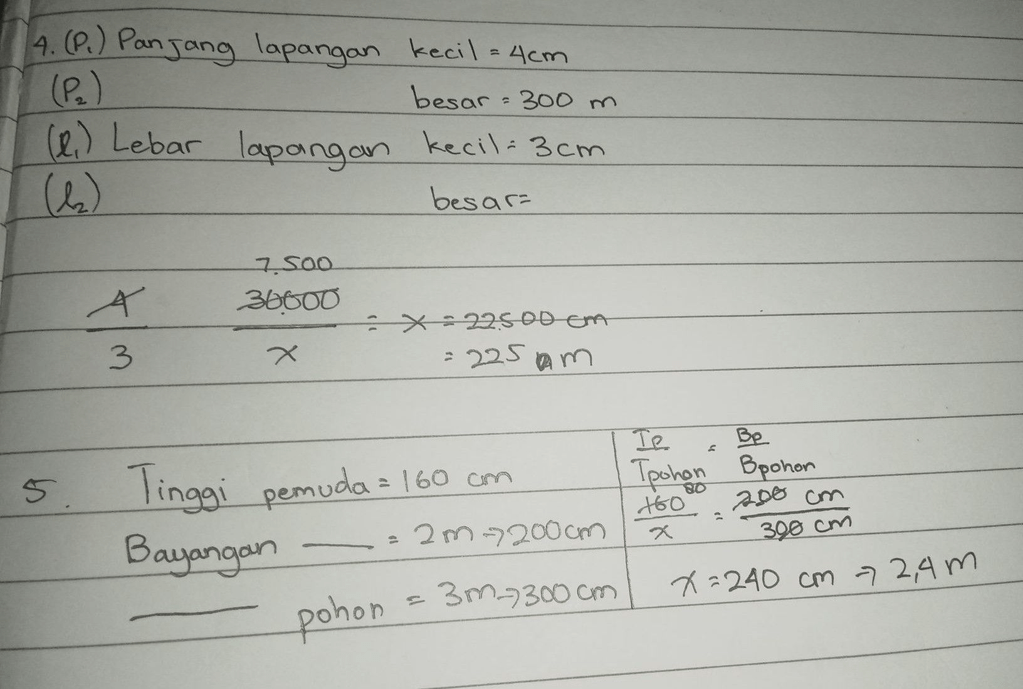 4. (P₁) Panjang lapangan kecil = 4cm
(P₂) besar = 300 m
(l₁) Lebar lapangan kecil = 3cm
(l₂) besar=
7.500
4 30.000 = x = 22500 cm
3 x = 225 m
5. Tinggi pemuda = 160 cm
Bayangan — = 2m → 200cm
— pohon = 3m → 300 cm
Tp = Bp
Tpohon Bpohon
160 80 = 200 cm
x 300 cm
x = 240 cm → 2,4 m